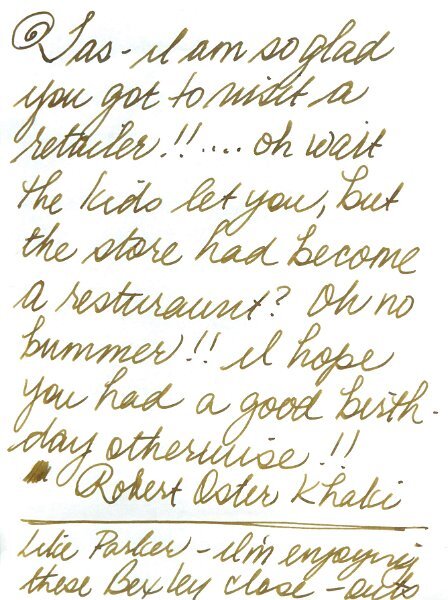 @Tas - I am so glad
you got to visit a
retailer!! .... oh wait
the kids let you, but
the store had become
a resturaunt? Oh no
bummer!! I hope
you had a good birth-
day otherwise!!
Robert Oster Khaki
Lite Parker - I'm enjoying
these Bexley close-outs